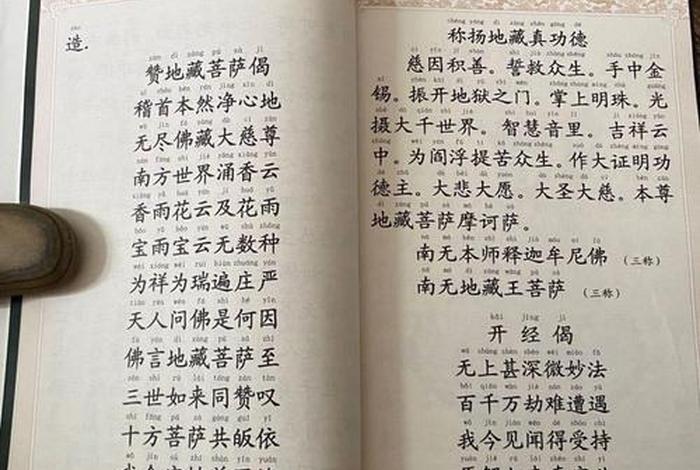 造.
赞地藏菩萨偈
稽首本然净心地
无尽佛藏大慈尊
南方世界涌香云
香雨花云及花雨
宝雨宝云无数种
为祥为瑞遍庄严
天人问佛是何因
佛言地藏菩萨至
三世如来同赞叹
十方菩萨共皈依
称扬地藏真功德
慈因积善。誓救众生。手中金
锡。振开地狱之门。掌上明珠。光
摄大千世界。智慧音里。吉祥云
中。为阎浮提苦众生。作大证明功
德主。大悲大愿。大圣大慈。本尊
地藏菩萨摩诃萨。
南无本师释迦牟尼佛 (三称)
南无地藏王菩萨 (三称)
开经偈
无上甚深微妙法
百千万劫难遭遇
我今见闻得受持